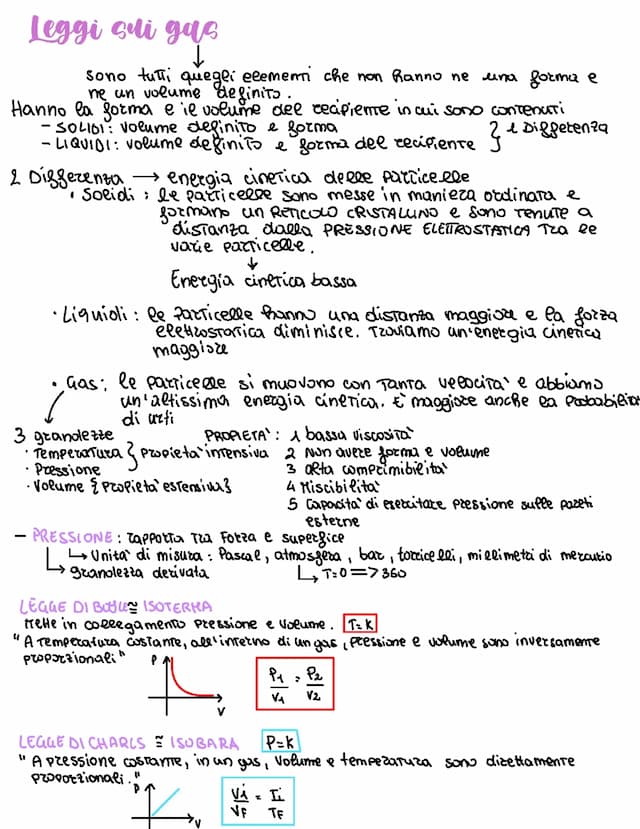 Leggi sui gas
sono tutti quegli elementi che non hanno ne una forma e
ne un volume definito.
Hanno la forma e il volume del recipiente in cui sono contenuti
- SOLIDI: volume definito e forma
- LIQUIDI: volume definito e forma del recipiente } 1 Differenza
2 Differenza → energia cinetica delle particelle
• Solidi : le particelle sono messe in maniera ordinata e
formano un RETICOLO CRISTALLINO e sono tenute a
distanza dalla PRESSIONE ELETTROSTATICA Tra le
varie particelle.
↓
Energia cinetica bassa
• Liquidi : le particelle hanno una distanza maggiore e la forza
elettrostatica diminisce. Troviamo un'energia cinetica
maggiore
• Gas: le particelle si muovono con tanta velocità e abbiamo
un'altissima energia cinetica. E' maggiore anche la probabilità
di urti
3 grandezze
• Temperatura } Propietà intensiva
• Pressione
• Volume { Propietà estensiva }
PROPIETA': 1 bassa viscosità
2 Non avere forma e volume
3 alta comprimibilità
4 Miscibilità
5 Capacità di esercitare pressione sulle pareti
esterne
- PRESSIONE: rapporto tra Forza e superfice
↳ Unità di misura : Pascal, atmosfera, bar, torricelli, millimetri di mercurio
↳ grandezza derivata
↳ T=0 => 360
LEGGE DI BOYLE ≅ ISOTERMA
Mette in collegamento Pressione e Volume. T=K
"A Temperatura costante, all'interno di un gas, pressione e volume sono inversamente
proporzionali"
P
V
P1 = P2
V1 V2
LEGGE DI CHARLS ≅ ISOBARA P=K
"A pressione costante, in un gas, volume e temperatura sono direttamente
proporzionali."
P
V
Vi = Ti
VF TF